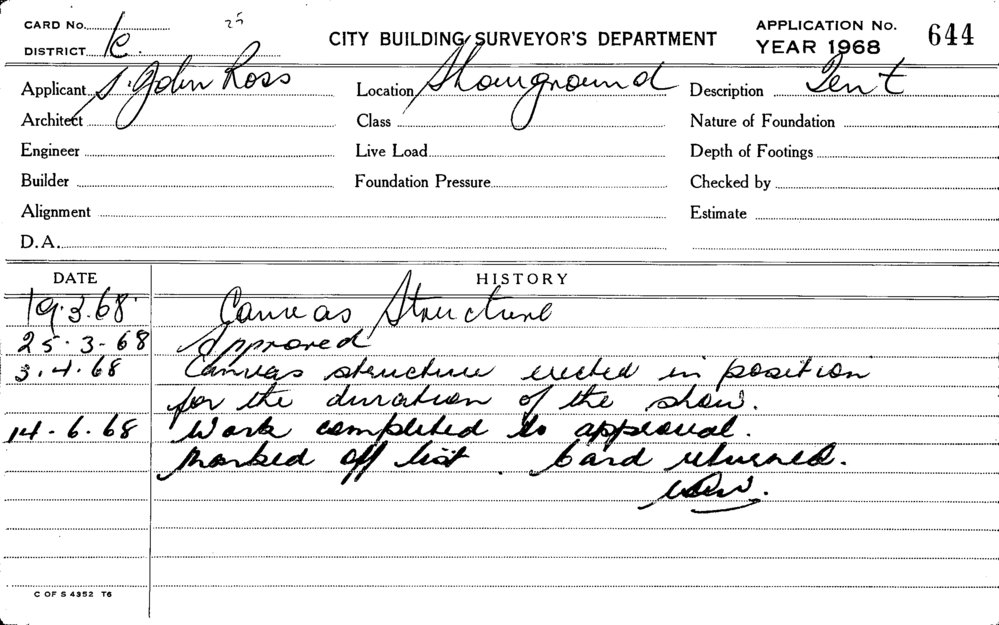 CARD No. 25 CITY BUILDING SURVEYOR'S DEPARTMENT APPLICATION No. 644
DISTRICT K. YEAR 1968
Applicant S. John Ross Location Showground Description Tent
Architect Class Nature of Foundation
Engineer Live Load Depth of Footings
Builder Foundation Pressure Checked by
Alignment Estimate
D.A.
DATE HISTORY
19.3.68. Canvas Structure
25.3-68 Approved
3.4.68 Canvas structure erected in position
for the duration of the show.
14-6.68 Work completed to approval.
Marked off list. Card returned.
C OF S 4352 T6